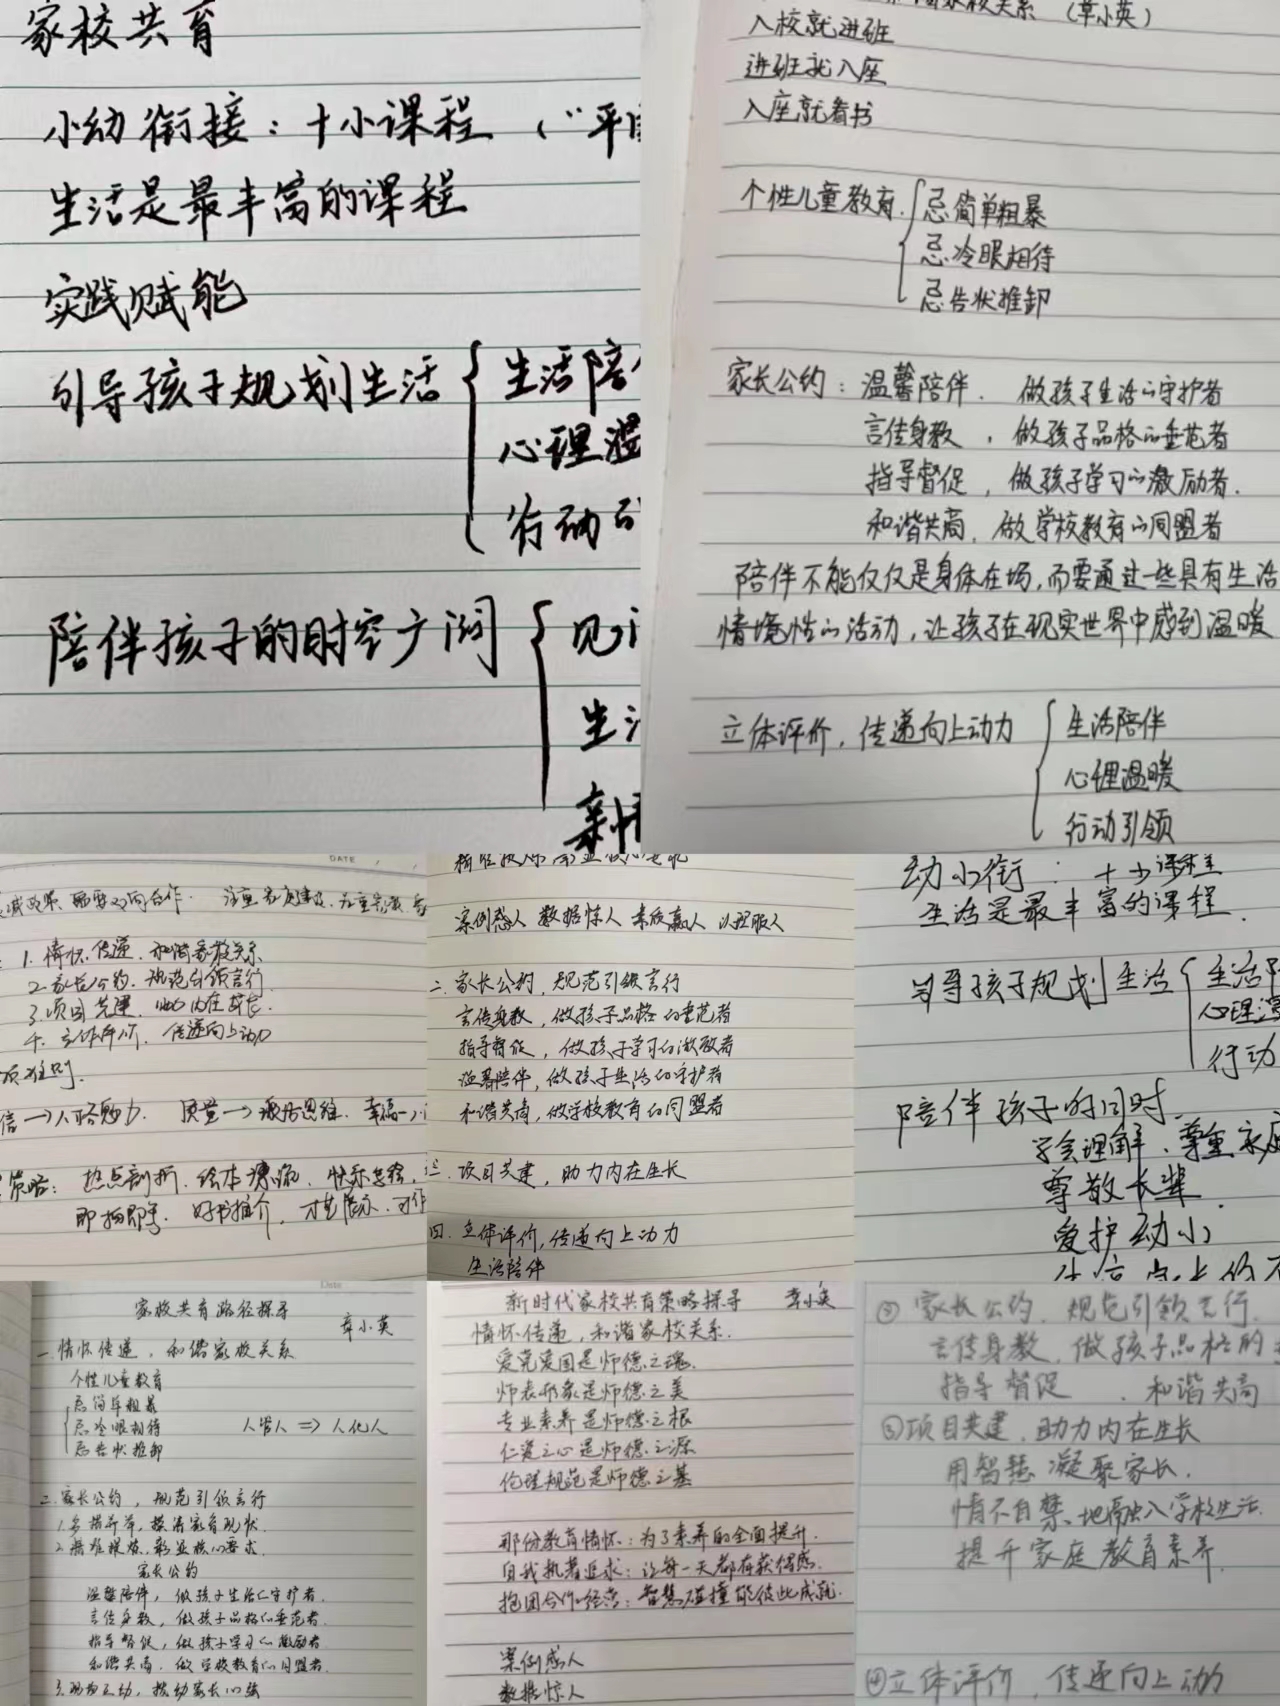 家校共育
小幼衔接：十小课程（“平
生活是最丰富的课程
实践赋能
引导孩子规划生活
生活陪
心理温
行动
陪伴孩子的时空广阔
见
生
亲情
家校关系（章小英）
入校就进班
进班就入座
入座就看书
个性儿童教育
忌简单粗暴
忌冷眼相待
忌告状推卸
家长公约：温馨陪伴．做孩子生活的守护者
言传身教，做孩子品格的垂范者
指导督促，做孩子学习的激励者．
和谐共商，做学校教育的同盟者
陪伴不能仅仅是身体在场，而要通过一些具有生活
情境性的活动，让孩子在现实世界中感到温暖
立体评价，传递向上动力
生活陪伴
心理温暖
行动引领
DATE
需要双向合作．
1. 情怀传递．和谐家校关系
2. 家长公约．规范引领言行．
3. 项目共建．助力内在成长．
4. 立体评价．传递向上动力
质量→激活思维．幸福→
策略：热点剖析．绘本
即拍即导．好书推介，才艺展示．
案例感人 数据惊人 素质赢人 以理服人
二．家长公约，规范引领言行
言传身教，做孩子品格的垂范者
指导督促，做孩子学习的激励者
温馨陪伴，做孩子生活的守护者
和谐共商，做学校教育的同盟者
三．项目共建，助力内在生长
四．立体评价，传递向上动力
生活陪伴
幼小衔：十小课程
生活是最丰富的课程．
引导孩子规划生活
生活陪
心理温
行动
陪伴孩子的同时．
学会理解．尊重家庭
尊敬长辈
爱护幼小
Date
家校共育路径探寻
章小英
一．情怀传递，和谐家校关系
个性儿童教育
忌简单粗暴
忌冷眼相待
忌告状推卸
人管人 => 人化人
二．家长公约，规范引领言行
1. 多措并举，摸清家育现状．
2. 精准提炼．彰显核心要求．
家长公约
温馨陪伴，做孩子生活的守护者．
言传身教，做孩子品格的垂范者．
指导督促，做孩子学习的激励者．
和谐共商．做学校教育的同盟者．
3. 互动，拨动家长心弦
新时代家校共育策略探寻 章小英
情怀传递，和谐家校关系．
爱党爱国是师德之魂．
师表形象是师德之美
专业素养是师德之根
仁爱之心是师德之源
伦理规范是师德之基
那份教育情怀：为了素养的全面提升．
自我执着追求：让每一天都有获得感．
抱团合作经营：智慧碰撞能彼此成就．
案例感人
数据惊人
② 家长公约．规范引领言行．
言传身教．做孩子品格的
指导督促．和谐共商
③ 项目共建．助力内在生长
用智慧凝聚家长．
情不自禁地融入学校生活．
提升家庭教育素养．
④ 立体评价．传递向上动力